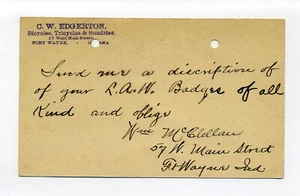 C. W. EDGERTON,
Bicycles, Tricycles & Sundries,
57 West Main Street,
FORT WAYNE, - INDIANA.
Send me a discription of
of your L.A.W. Badges of all
Kind and oblige
Wm McClellan
57 W. Main Street
Ft Wayne Ind